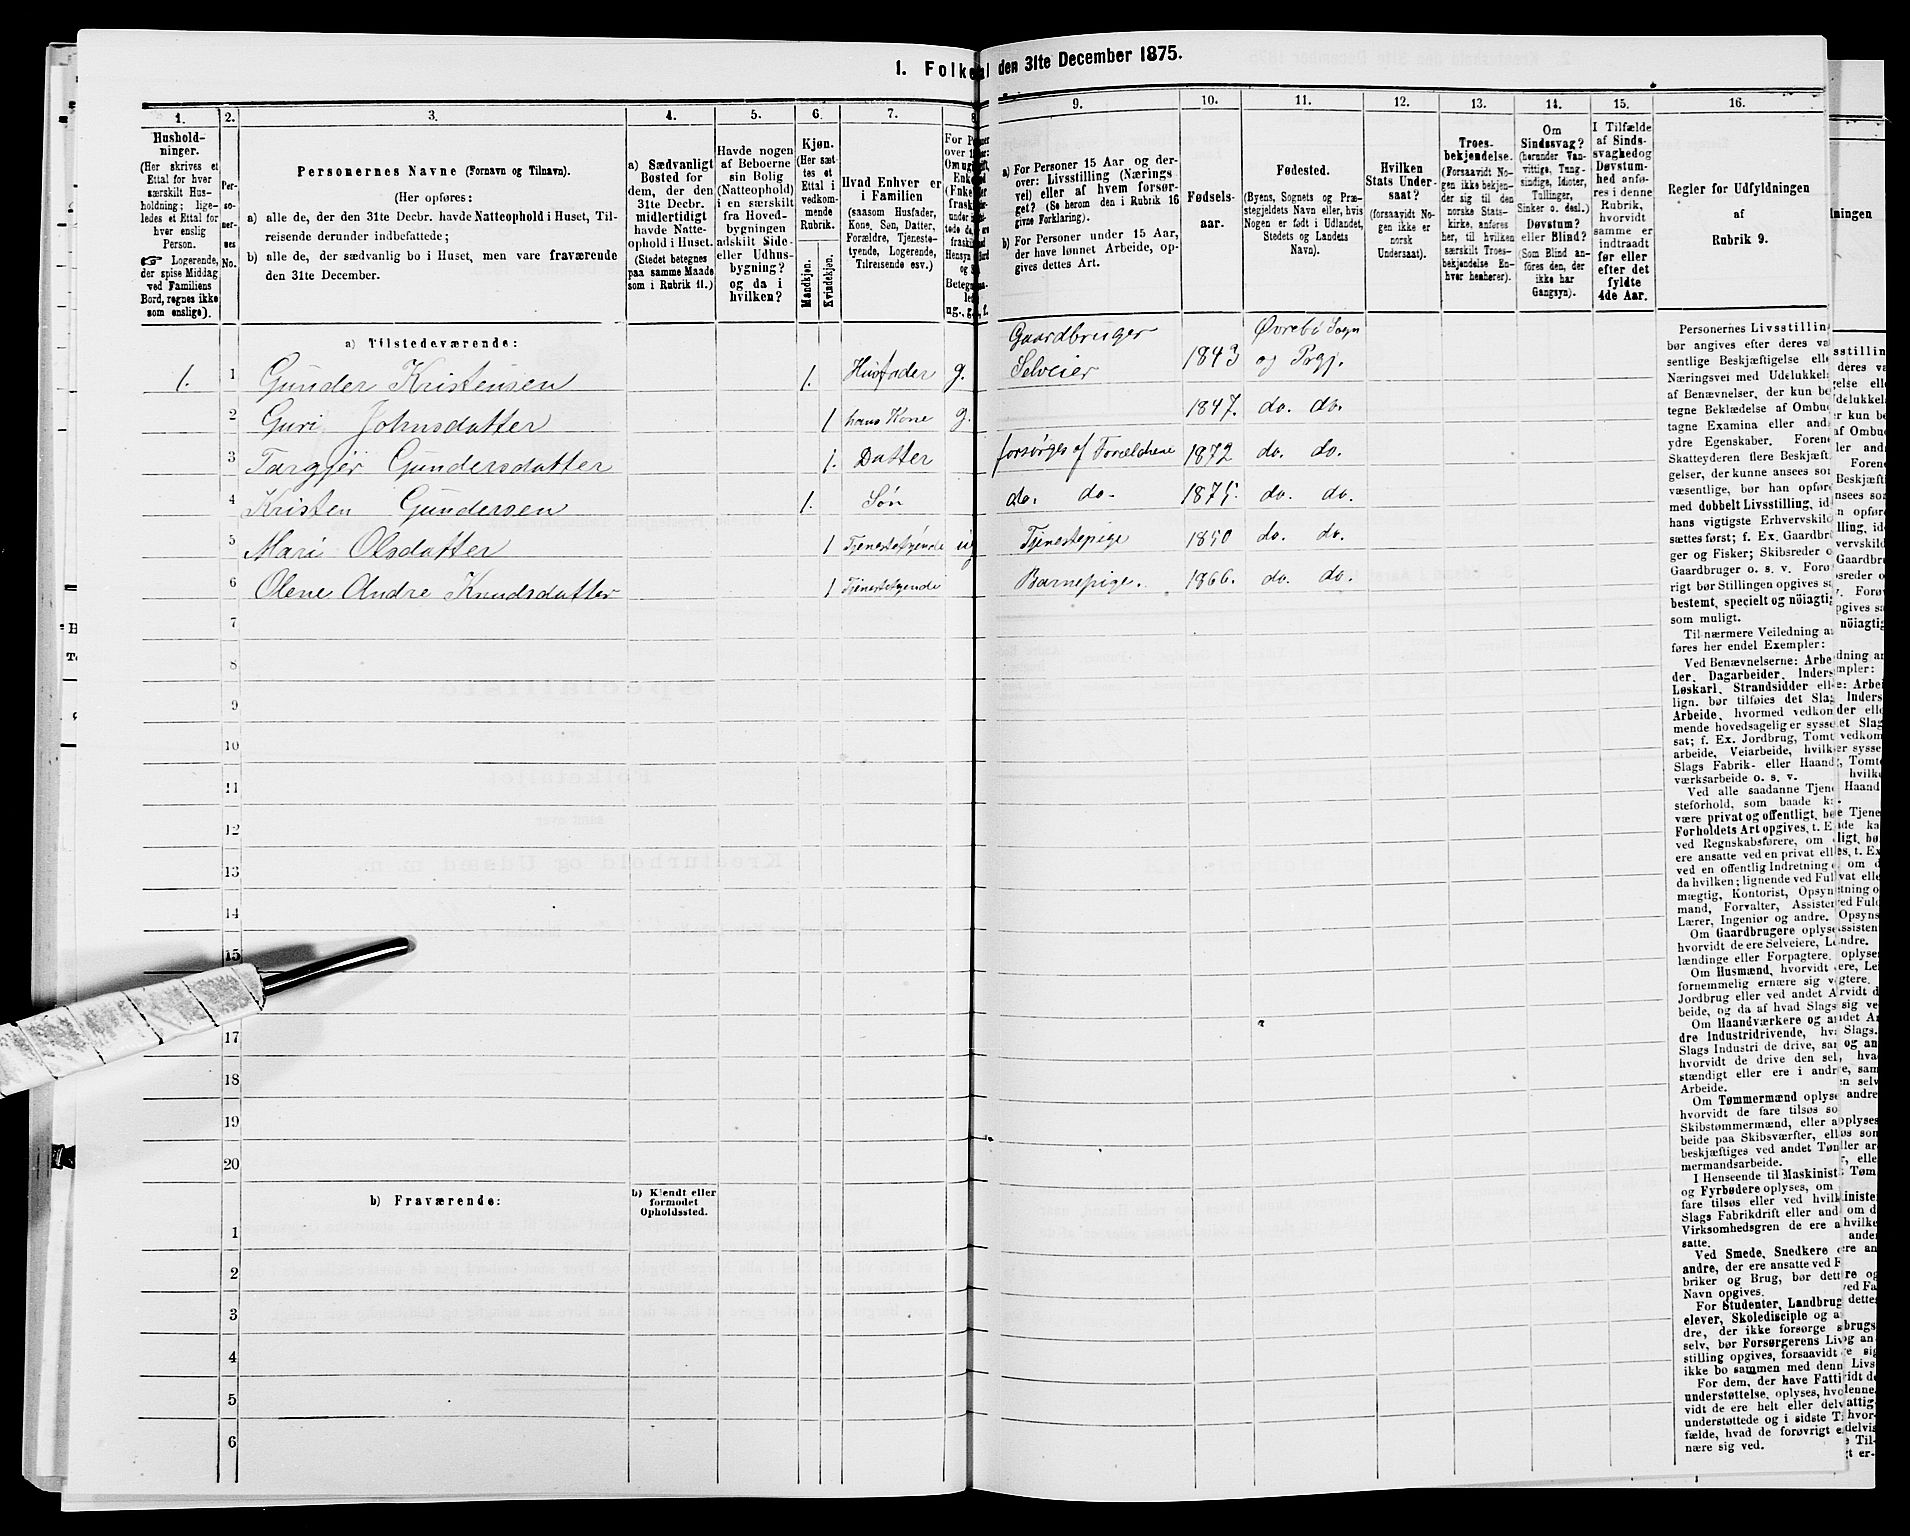 1. Folketal den 31te December 1875.
1.
Hushold-
ninger.
(Her skrives et
Ettal for hver
særskilt Hus-
holdning; lige-
ledes et Ettal for
hver enslig
Person.
☞ Logerende,
der spise Middag
ved Familiens
Bord, regnes ikke
som enslige).
2.
Per-
so-
ner-
nes
No.
3.
Personernes Navne (Fornavn og Tilnavn).
(Her opføres:
a) alle de, der den 31te Decbr. havde Natteophold i Huset, Til-
reisende derunder indbefattede;
b) alle de, der sædvanlig bo i Huset, men vare fraværende
den 31te December.
4.
a) Sædvanligt
Bosted for
dem, der den
31te Decbr.
midlertidigt
havde Natte-
ophold i Huset.
(Stedet betegnes
paa samme Maade
som i Rubrik 11.)
5.
Havde nogen
af Beboerne
sin Bolig
(Natteophold)
i en særskilt
fra Hoved-
bygningen
adskilt Side-
eller Udhus-
bygning?
og da i
hvilken?
6.
Kjøn.
(Her sæt-
tes et
Ettal i
vedkom-
mende
Rubrik.
Mandkjøn.
Kvindekjøn.
7.
Hvad Enhver er
i Familien
(saasom Husfader,
Kone, Søn, Datter,
Forældre, Tjeneste-
tyende, Logerende,
Tilreisende osv.)
8.
9.
a) For Personer 15 Aar og der-
over: Livsstilling (Nærings
vei) eller af hvem forsør-
get? (Se herom den i Rubrik 16
givne Forklaring).
b) For Personer under 15 Aar,
der have lønnet Arbeide, op-
gives dettes Art.
10.
Fødsels-
aar.
11.
Fødested.
(Byens, Sognets og Præ-
stegjeldets Navn eller, hvis
Nogen er født i Udlandet,
Stedets og Landets
Navn).
12.
Hvilken
Stats Under-
saat?
(forsaavidt No-
gen ikke er
norsk
Undersaat).
13.
Troes-
bekjendelse.
(Forsaavidt No-
gen ikke bekjen-
der sig til den
norske Stats-
kirke, anføres
her, til hvilken
særskilt Troes-
bekjendelse En-
hver henhører).
14.
Om
Sindssvag?
(herunder Van-
vittige, Tung-
sindige, Idioter,
Tullinger,
Sinker o. desl.)
Døvstum?
eller Blind?
(Som Blind an-
føres den, der
ikke har
Gangsyn).
15.
I Tilfælde
af Sinds-
svaghed og
Døvstum-
hed anfø-
res i denne
Rubrik,
hvorvidt
samme er
indtraadt
før eller
efter det
fyldte
4de Aar.
16.
Regler for Udfyldningen
af
Rubrik 9.
a) Tilstedeværende:
1. 1 Gunder Kristensen 1. Husfader g. Gaardbruger Selveier 1843 Øvrebø Sogn og Prgj.
2 Guri Johnsdatter 1 hans Kone g. 1847. do. do.
3 Targjer Gundersdatter 1. Datter forsørges af Forældrene 1872 do. do.
4 Kristen Gundersen 1. Søn do. do. 1875. do. do.
5 Mari Olsdatter 1 Tjenestetyende ug Tjenestepige 1850 do. do.
6 Olene Andre Knudsdatter 1 Tjenestetyende Barnepige. 1866. do. do.
7
8
9
10
11
12
13
14
15
17
18
19
20
b) Fraværende:
b) Kjendt eller
formodet
Opholdssted.
1
2
3
4
5
6
Personernes Livsstilling
bør angives efter deres
sentlige Beskjæftigelse
Næringsvei med Udelukkel
af Benævnelser, der kun be
tegne Beklædelse af Ombud
tagne Examina eller
ydre Egenskaber.
Skatteyderen flere Beskjæft
gelser, der kunne ansees
væsentlige, bør han opføres
med dobbelt Livsstilling,
hans vigtigste Erhvervskild
sættes først; f. Ex. Gaardbr
ger og Fisker; Skibsreder
Gaardbruger o. s. v.
rigt bør Stillingen opgives
bestemt, specielt og nöiagtig
som muligt.
Til nærmere Veiledning
føres her endel Exempler:
Ved Benævnelserne: Arbe
der, Dagarbeider, Inders
Løskarl, Strandsidder
lign. bør tilføies det Slag
Arbeide, hvormed vedkom
mende hovedsagelig er sysse
sat; f. Ex. Jordbrug, Tomt
arbeide, Veiarbeide,
Slags Fabrik- eller Haand
værksarbeide o. s. v.
Ved alle saadanne Tjene
steforhold, som baade
være privat og offentligt,
Forholdets Art opgives,
ved Regnskabsførere, om
ere ansatte ved en privat
ved en offentlig Indretning
da hvilken; lignende ved Ful
mægtig, Kontorist, Opsyn
mand, Forvalter, Assisten
Lærer, Ingeniør og andre.
Om Gaardbrugere oplyse
hvorvidt de ere Selveiere,
lændinge eller Forpagtere.
Om Husmænd, hvorvidt
fornemmelig ernære sig
Jordbrug eller ved andet
beide, og da af hvad Slags
Om Haandværkere og
dre Industridrivende,
Slags Industri de drive,
hvorvidt de drive den
stændigt eller ere i
Arbeide.
Om Tømmermænd oplyse
hvorvidt de fare tilsøs
Skibstømmermænd, eller
beide paa Skibsværfter,
beskjæftiges ved andet
mermandsarbeide.
I Henseende til Maskinist
og Fyrbødere oplyses, om
fare tilsøs eller ved
Slags Fabrikdrift eller
Virksomhedsgren de ere
satte.
Ved Smede, Snedkere
andre, der ere ansatte ved
briker og Brug, bør
Navn opgives.
For Studenter, Landbrug
elever, Skoledisciple og
dre, der ikke forsørge
selv, bør Forsørgerens
stilling opgives, forsaavidt
ikke bo sammen med
For dem, der have Fatti
understøttelse, oplyses,
vidt de ere helt eller
understøttede og i sidste
fælde, hvad de forøvrigt
nære sig ved.